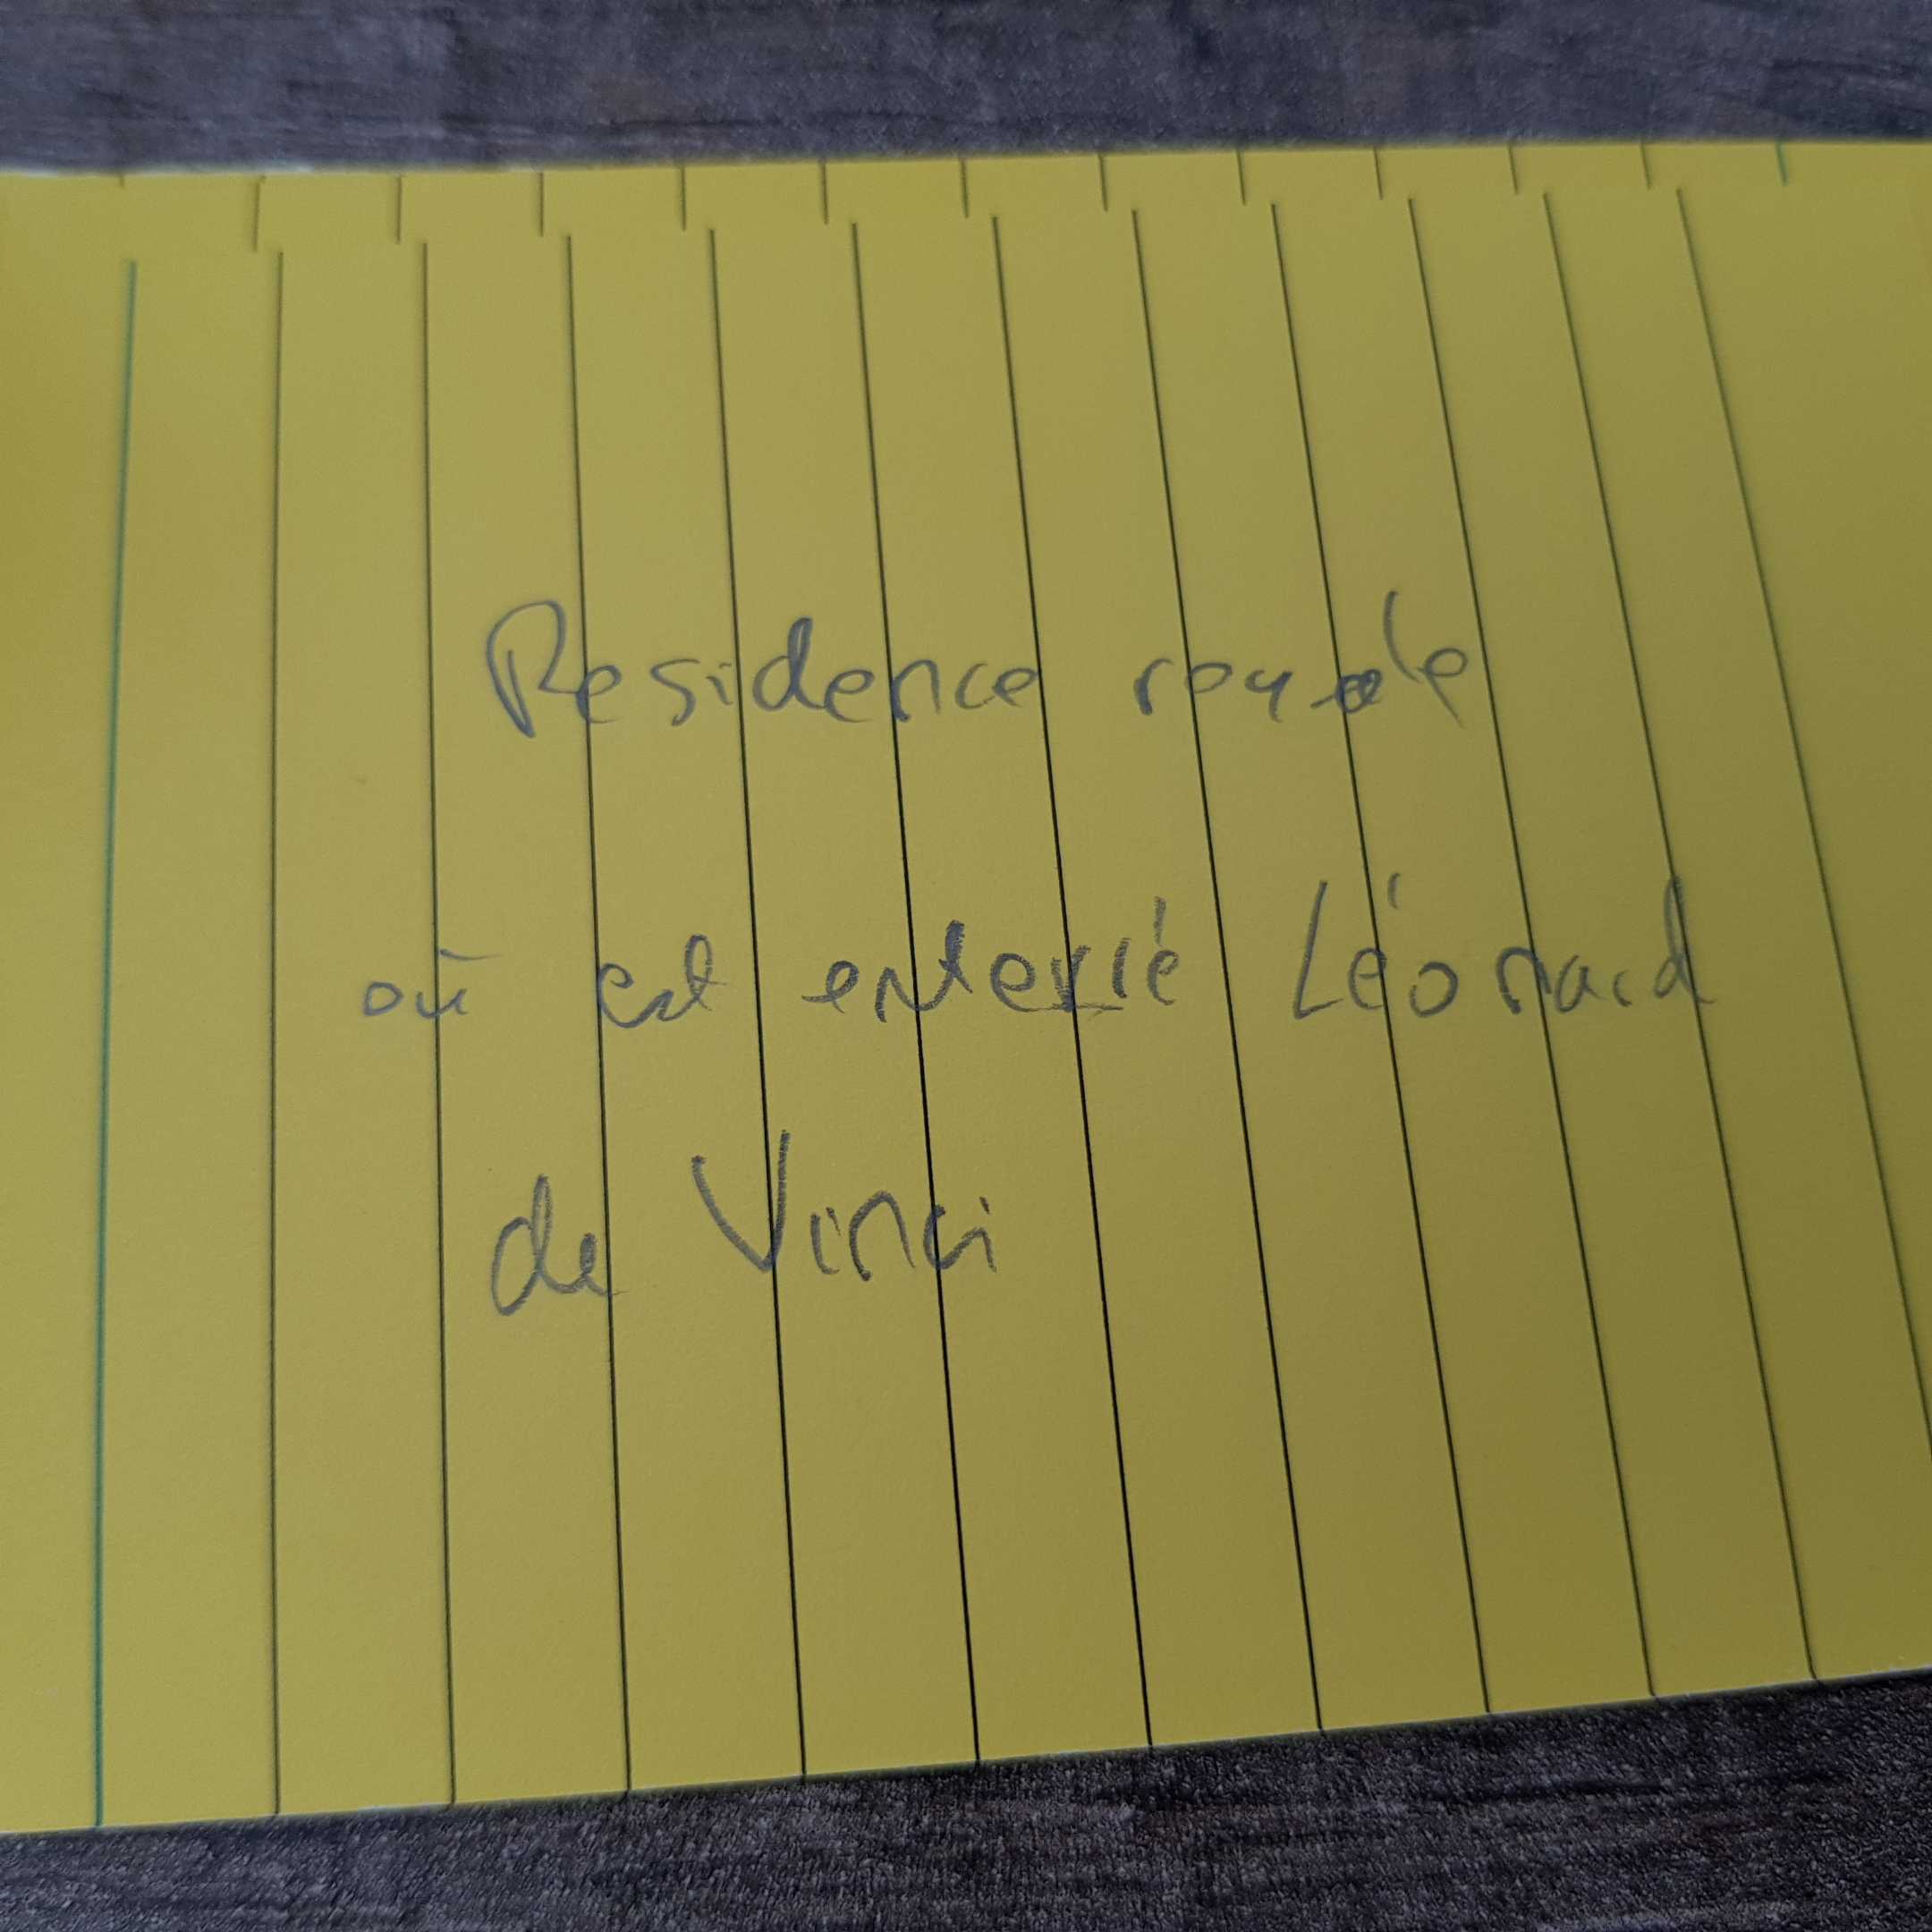 Residence royale
où est enterré Léonard
de Vinci